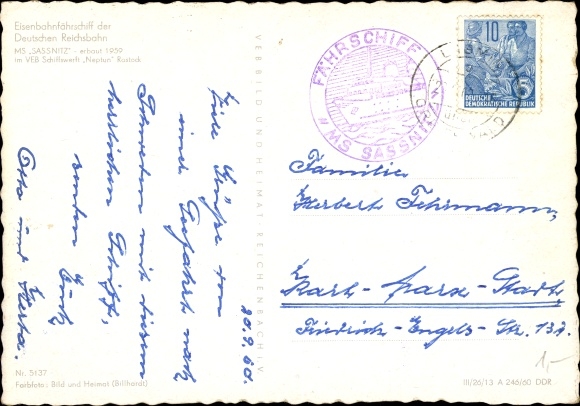 Eisenbahnfährschiff der
Deutschen Reichsbahn
MS „SASSNITZ" - erbaut 1959
im VEB Schiffswerft „Neptun" Rostock
20.9.60.
Viele Grüße von
einer Seefahrt nach
Schweden mit diesem
herrlichen Schiff,
senden Euch
Otto und Herta.
VERBILD UND HEIMAT REICHENBACH I. V.
FÄHRSCHIFF
"MS SASSNITZ"
10
5
DEUTSCHE
DEMOKRATISCHE REPUBLIK
Familie
Herbert Fehrmann,
Karl-Marx-Stadt,
Friedrich-Engels-Str. 137.
1,-
Nr. 5137
Farbfoto: Bild und Heimat (Billhardt)
III/26/13 A 246/60 DDR